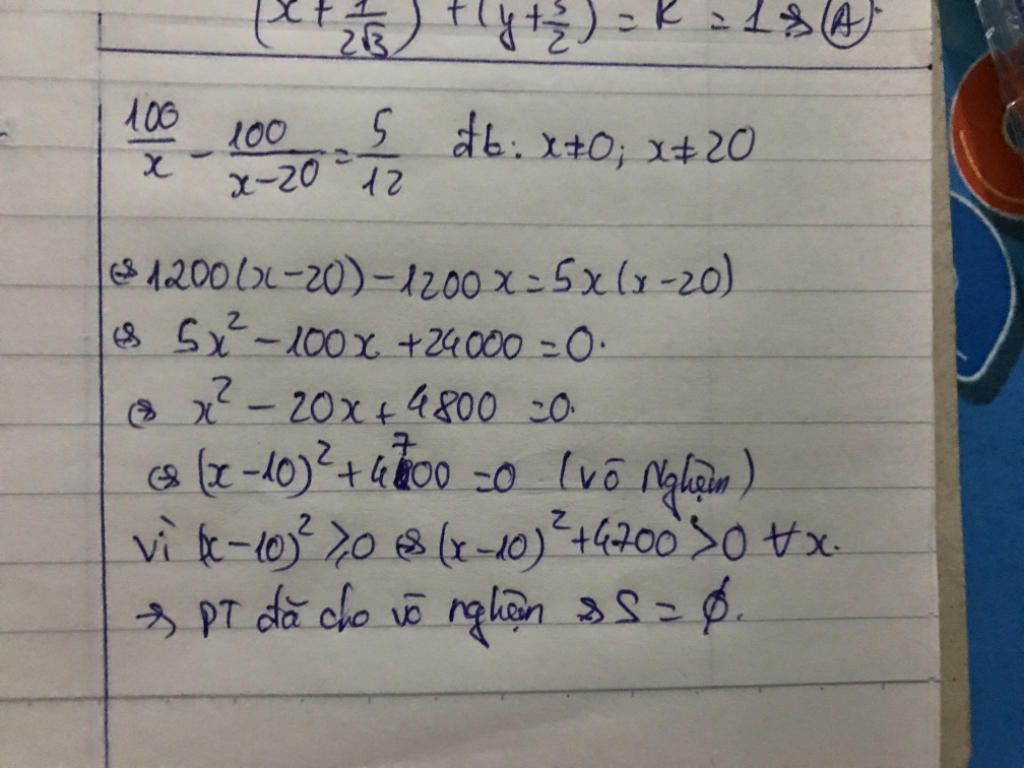 (x + 1/2√3) + (y + 5/2) = R = 1 ⇒ (A).
100/x − 100/(x−20) = 5/12 đk: x≠0; x≠20
⇔ 1200(x−20) − 1200x = 5x(x−20)
⇔ 5x² − 100x + 24000 = 0.
⇔ x² − 20x + 4800 = 0.
⇔ (x−10)² + 4700 = 0 (vô Nghiệm)
vì (x−10)² ≥ 0 ⇔ (x−10)² + 4700 > 0 ∀x.
⇒ PT đã cho vô nghiệm ⇒ S = ∅.